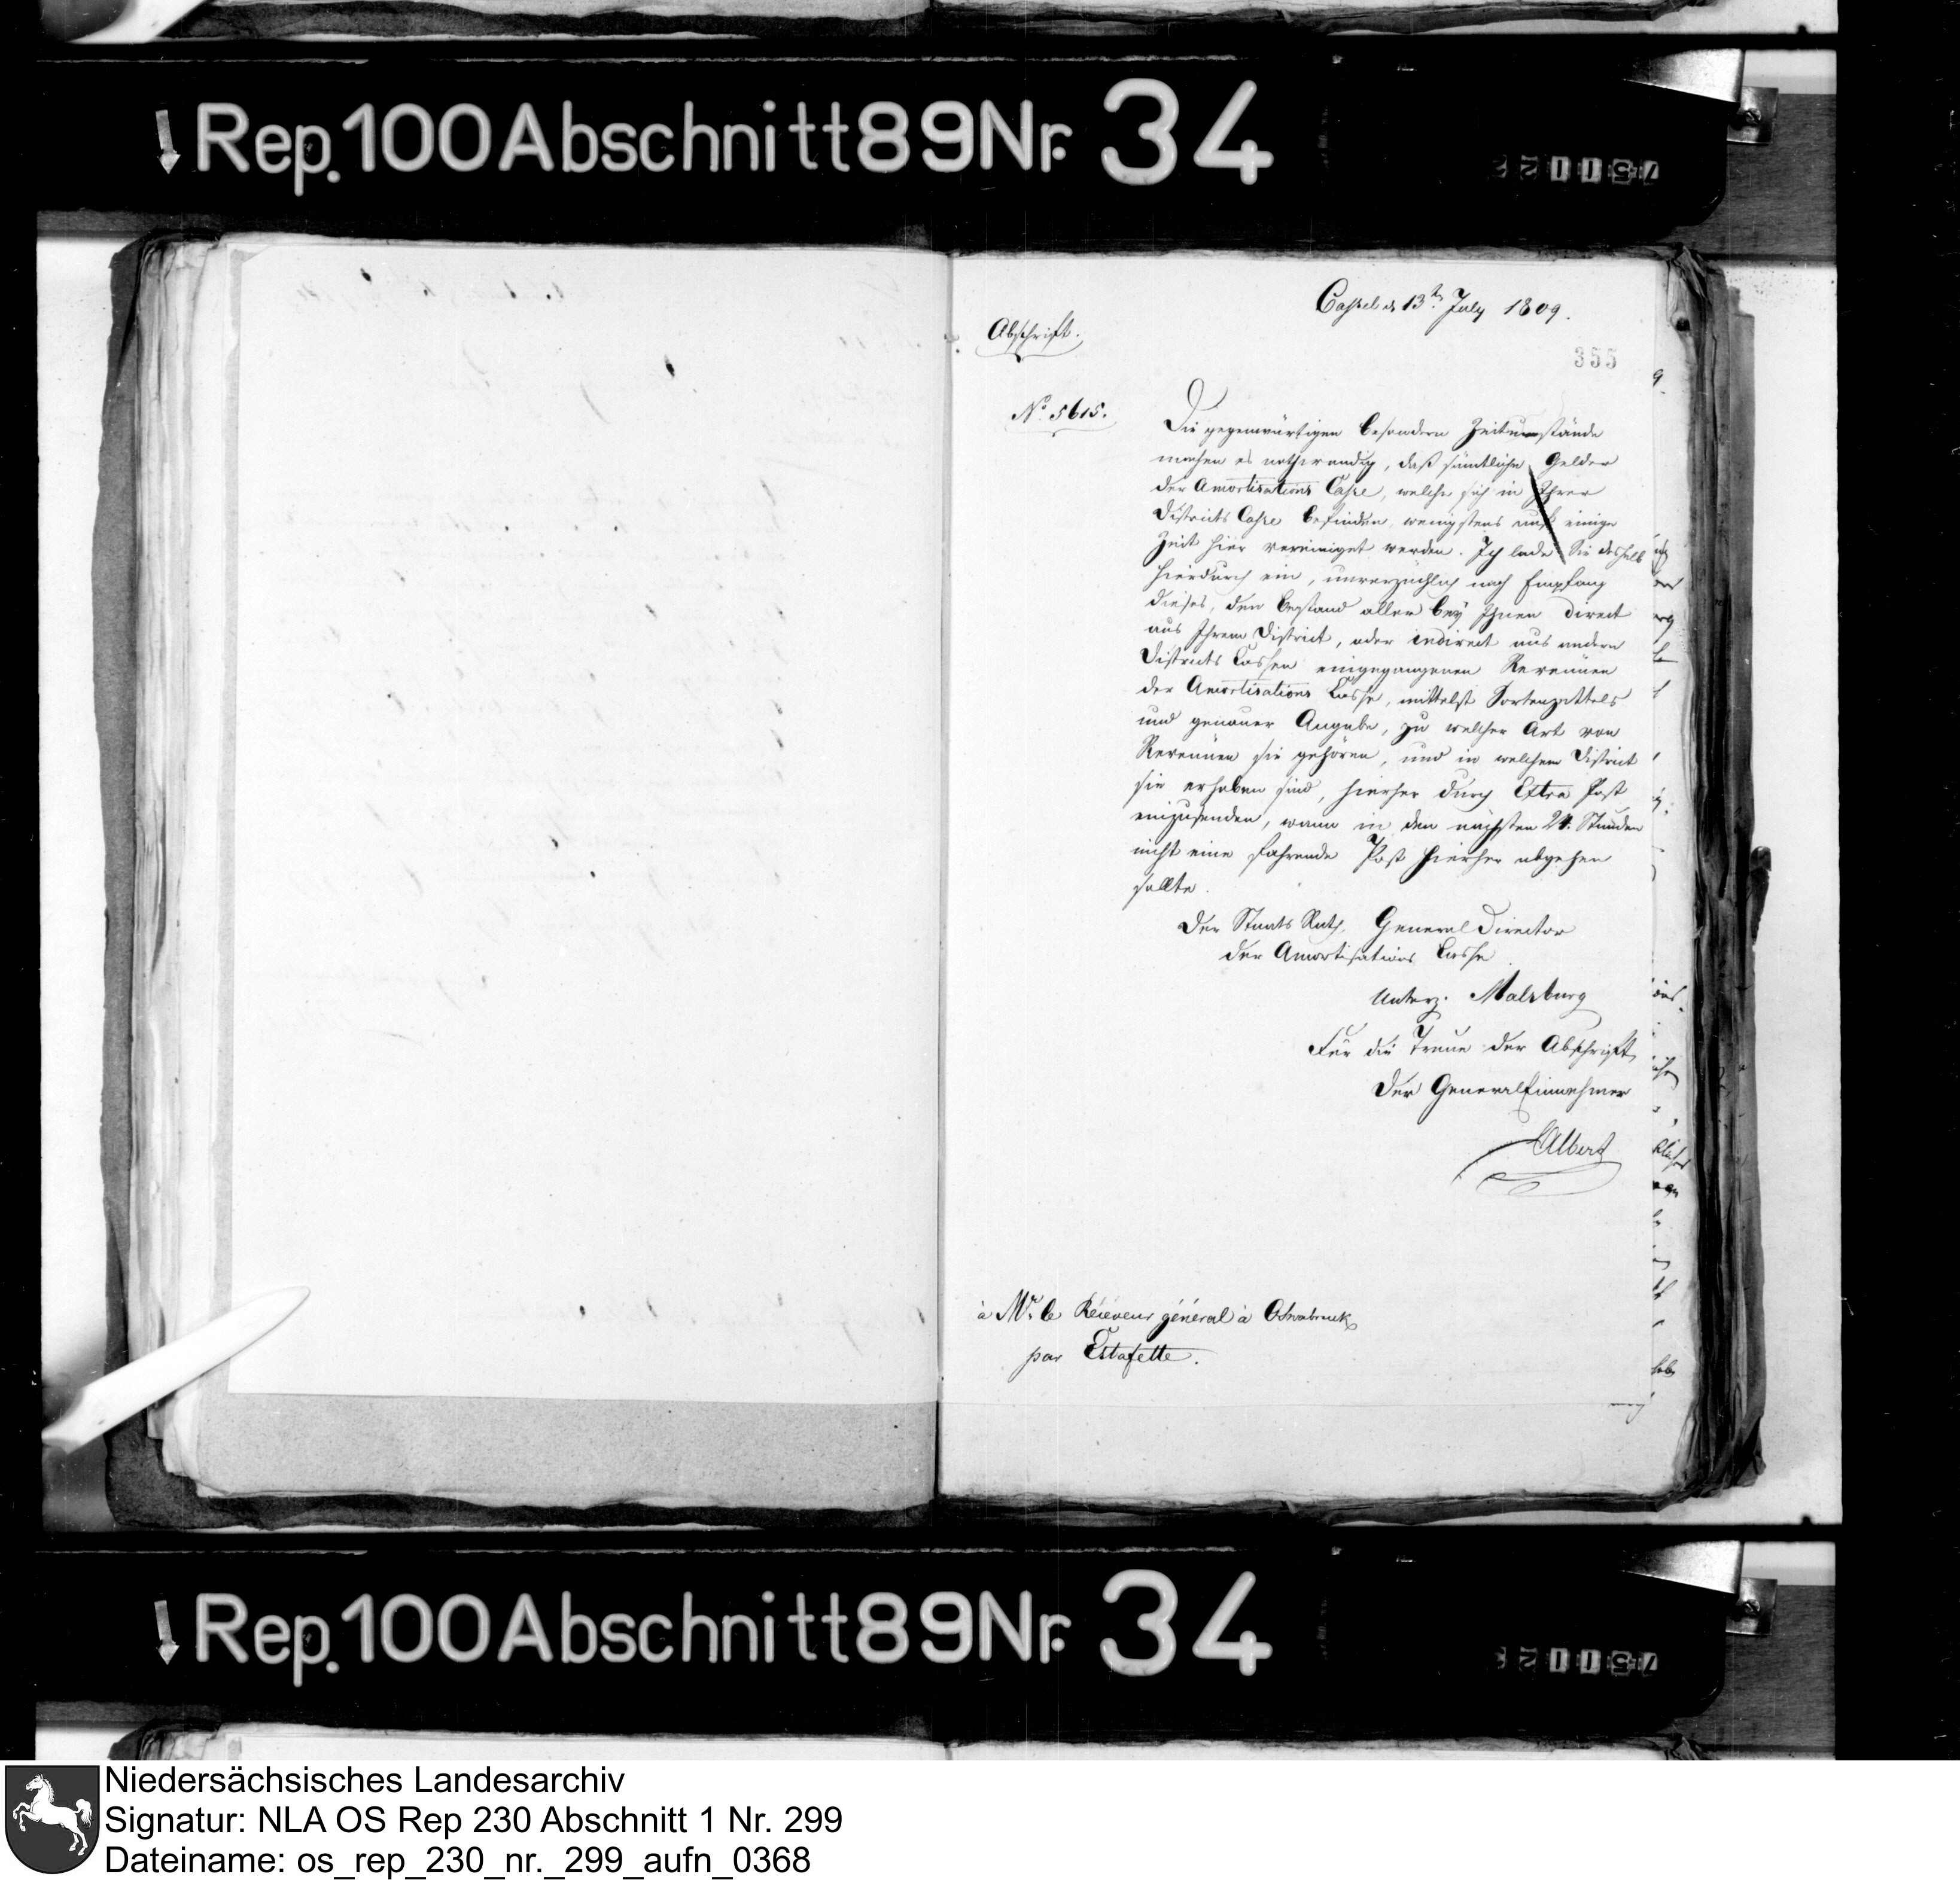 Rep. 100 Abschnitt 89 Nr. 34
Cassel d. 13t. July 1809.
Abschrift.
355
No. 5615.
Die gegenwärtigen besondern Zeitumstände
machen es nothwendig, daß sämtliche Gelder
der Amortisations Casse, welche sich in Ihrer
Districts Casse befinden, wenigstens auf einige
Zeit hier vereiniget werden. Ich lade Sie deshalb
hierdurch ein, unverzüglich nach Empfang
dieses, den Bestand aller bey Ihnen direct
aus Ihrem District, oder indirect aus andern
Districts Cassen eingegangenen Revenüen
der Amortisations Casse, mittelst Sortenzettels
und genauer Angabe, zu welcher Art von
Revenüen sie gehören, und in welchem District
sie erhoben sind, hierher durch Extra Post
einzusenden, wann in den nächsten 24. Stunden
nicht eine fahrende Post hierher abgehen
sollte.
Der Staats Rath, General Director
der Amortisations Casse
Unterz. Malsburg
Für die Treue der Abschrift
Der General Einnehmer
Albert
à Mr. le Réceveur général à Osnabruck
par Estafette.
Rep. 100 Abschnitt 89 Nr. 34
Niedersächsisches Landesarchiv
Signatur: NLA OS Rep 230 Abschnitt 1 Nr. 299
Dateiname: os_rep_230_nr._299_aufn_0368